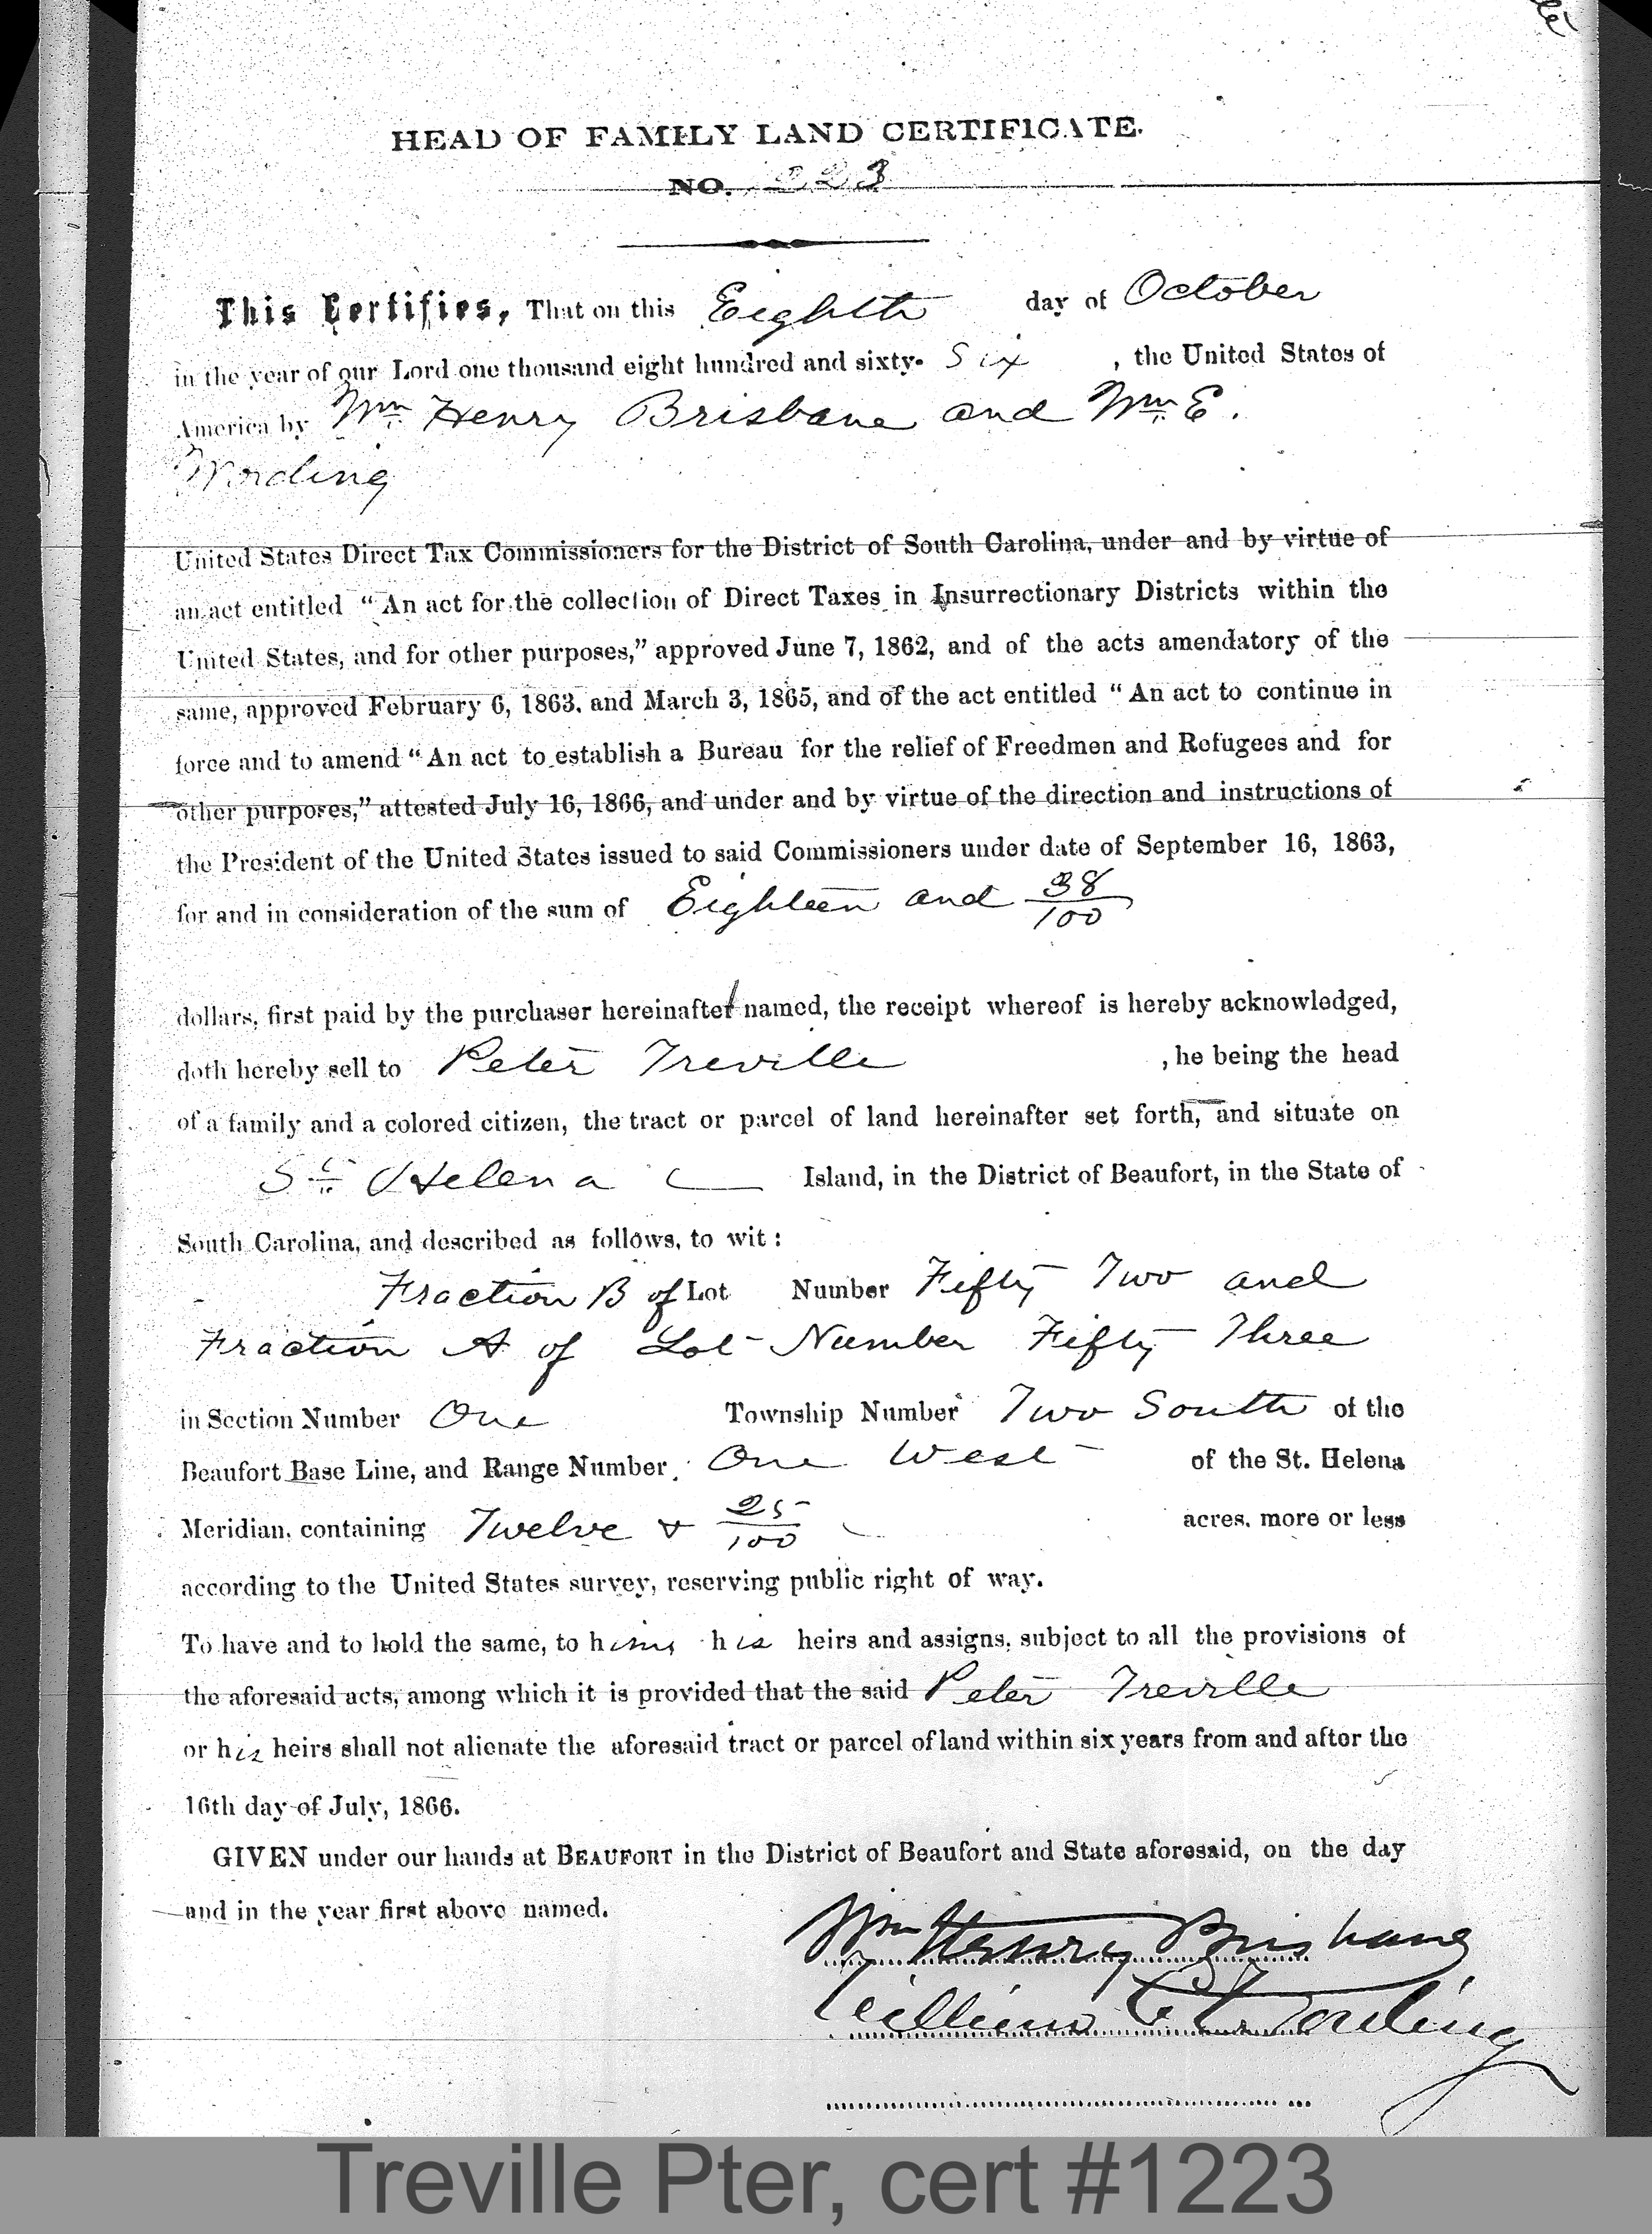 HEAD OF FAMILY LAND CERTIFICATE.
NO. 223
This Certifies, That on this Eighth day of October
in the year of our Lord one thousand eight hundred and sixty- Six , the United States of
America by Wm Henry Brisbane and Wm E.
Wording
United States Direct Tax Commissioners for the District of South Carolina, under and by virtue of
an act entitled “An act for the collection of Direct Taxes in Insurrectionary Districts within the
United States, and for other purposes,” approved June 7, 1862, and of the acts amendatory of the
same, approved February 6, 1863. and March 3, 1865, and of the act entitled “An act to continue in
force and to amend “An act to establish a Bureau for the relief of Freedmen and Refugees and for
other purposes,” attested July 16, 1866, and under and by virtue of the direction and instructions of
the President of the United States issued to said Commissioners under date of September 16, 1863,
for and in consideration of the sum of Eighteen and 38/100
dollars, first paid by the purchaser hereinafter named, the receipt whereof is hereby acknowledged,
doth hereby sell to Peter Treville , he being the head
of a family and a colored citizen, the tract or parcel of land hereinafter set forth, and situate on
St Helena Island, in the District of Beaufort, in the State of
South Carolina, and described as follows, to wit:
Fraction B of Lot Number Fifty Two and
Fraction A of Lot Number Fifty Three
in Section Number One Township Number Two South of the
Beaufort Base Line, and Range Number One West of the St. Helena
Meridian, containing Twelve & 25/100 acres, more or less
according to the United States survey, reserving public right of way.
To have and to hold the same, to him, his heirs and assigns, subject to all the provisions of
the aforesaid acts, among which it is provided that the said Peter Treville
or his heirs shall not alienate the aforesaid tract or parcel of land within six years from and after the
16th day of July, 1866.
GIVEN under our hands at BEAUFORT in the District of Beaufort and State aforesaid, on the day
and in the year first above named.
Wm Henry Brisbane
William E. Wording
Treville Pter, cert #1223